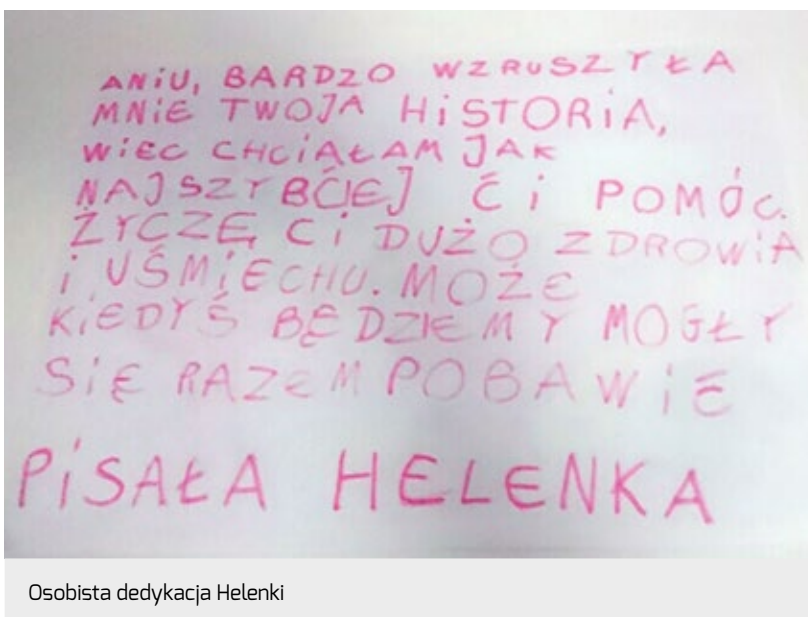 ANiU, BARDZO WZRUSZYŁA
MNiE TWOJA HiSTORiA,
WiEC CHCiAŁAM JAK
NAJSZYBĆIEJ Ći POMÓC.
ŻYCZĘ Ci DUŻO ZDROWiA
i UŚMiECHU. MOŻE
KiEDYŚ BĘDZIEMY MOGŁY
SiĘ RAZEM POBAWiĆ
PiSAŁA HELENKA
Osobista dedykacja Helenki